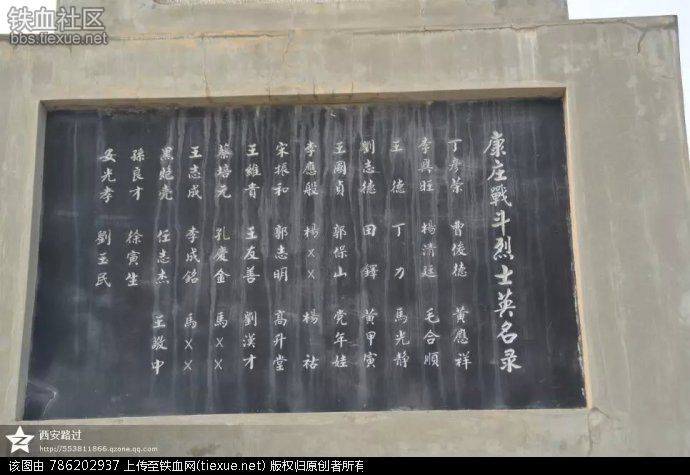 铁血社区
bbs.tiexue.net
康庄戰斗烈士英名录
丁彦荣 曹俊德 黄應祥
李興旺 楊清廷 毛合順
王德 丁刀 馬光静
劉志德 田鐸 黄甲寅
王國貞 郭保山 党年娃
李應般 楊×× 楊祜
宋振和 郭志明 高升堂
王維貴 王友善 劉漢才
蔡培元 孔慶金 馬××
王志成 李成銘 馬××
黑娃壳 任志杰 王敬中
孫良才 徐寅生
安光孝 劉玉民
西安路过
http://553811866.qzone.qq.com
该图由 786202937 上传至铁血网(tiexue.net) 版权归原创者所有